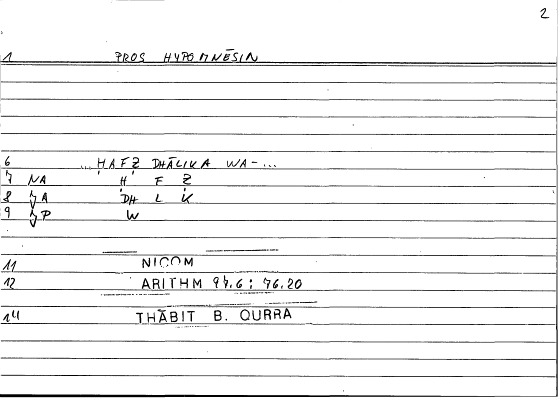 2
1 PROS HYPOMNĒSIN
6 ...HAFZ DHĀLIKA WA-...
7 NA H F Z
8 A DH L K
9 P W
11 NICOM
12 ARITHM 97.6 : 76.20
14 THĀBIT B. QURRA